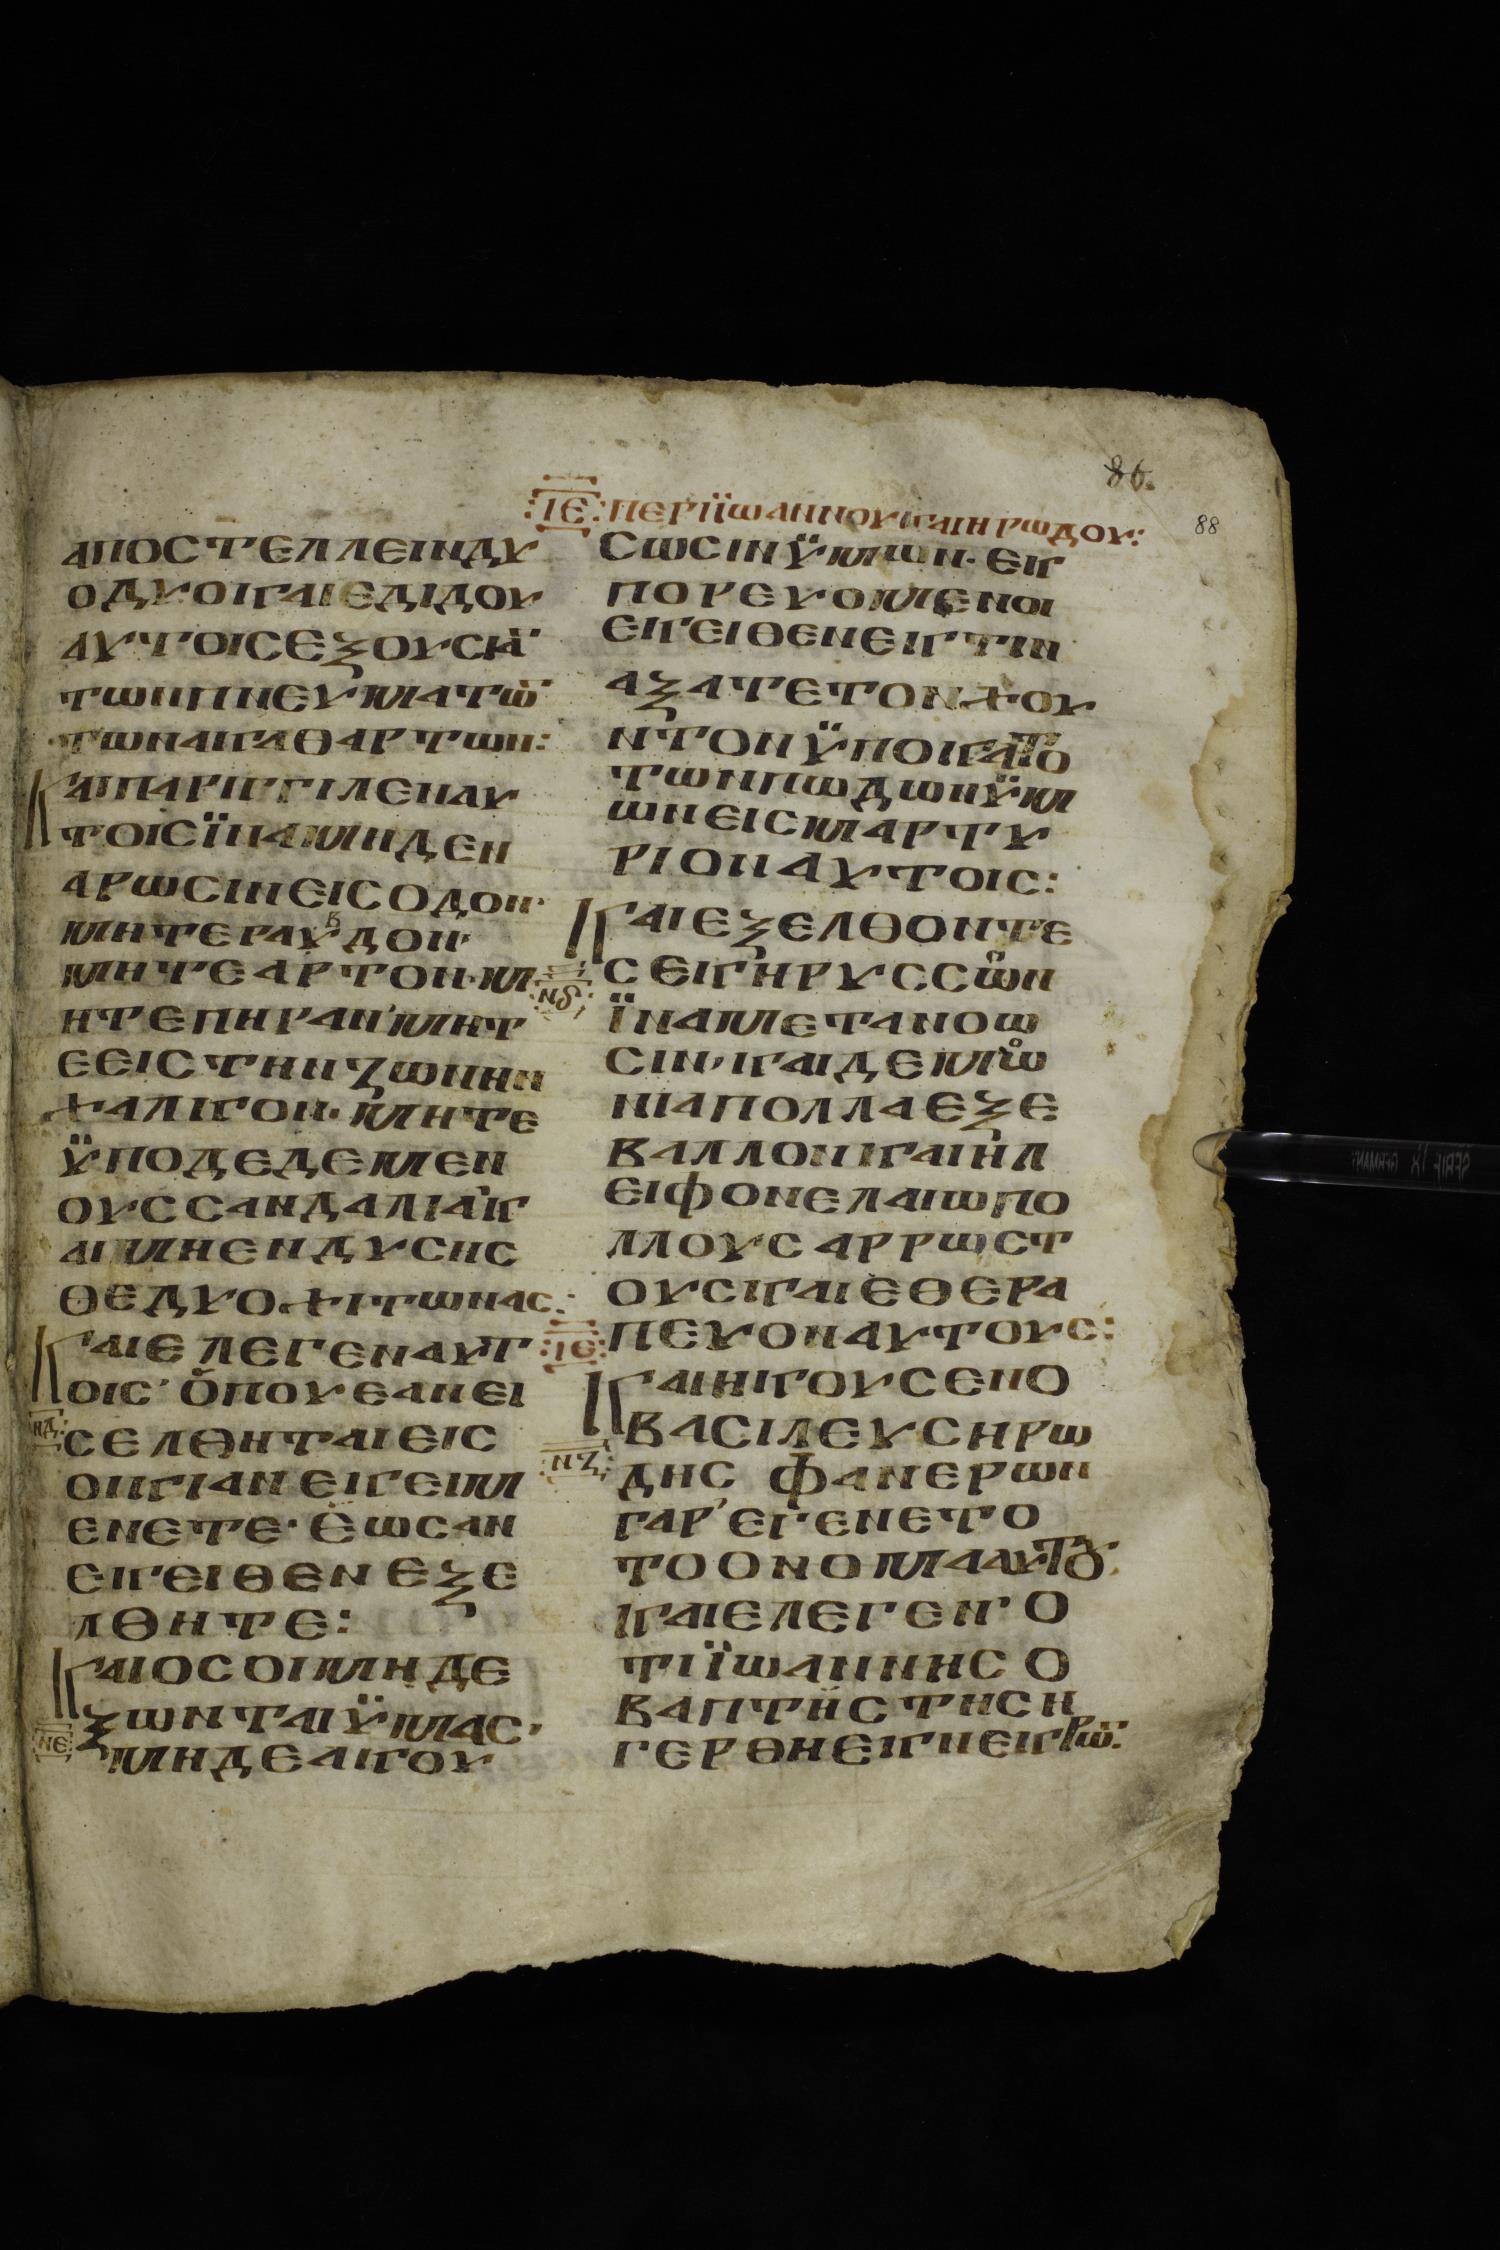 86.
88
:ΙΕ: ΠΕΡΙΪΩΑΝΝΟΥΚΑΙΗΡΩΔΟΥ:
ΑΠΟΣΤΕΛΛΕΙΝΔΥ
ΟΔΥΟΚΑΙΕΔΙΔΟΥ
ΑΥΤΟΙΣΕΞΟΥΣΙΑ̈
ΤΩΝΠΝΕΥΜΑΤΩ̈
ΤΩΝΑΚΑΘΑΡΤΩΝ:
ΚΑΙΠΑΡΗΓΓΙΛΕΝΑΥ
ΤΟΙΣΪΝΑΜΗΔΕΝ
ΑΡΩΣΙΝΕΙΣΟΔΟΝ·
ΜΗΤΕΡΑΥΒΔΟΝ·
ΜΗΤΕΑΡΤΟΝ·Μ
ΗΤΕΠΗΡΑΝ'ΜΗΤ
ΕΕΙΣΤΗΝΖΩΝΗΝ
ΧΑΛΚΟΝ·ΜΗΤΕ
ΫΠΟΔΕΔΕΜΕΝ
ΟΥΣΣΑΝΔΑΛΙΑ'Κ
ΑΙΜΗΕΝΔΥΣΗΣ
ΘΕΔΥΟΧΙΤΩΝΑΣ:
ΚΑΙΕΛΕΓΕΝΑΥΤ
ΟΙΣ'ΟΠΟΥΕΑΝΕΙ
ΝΔ: ΣΕΛΘΗΤΑΙΕΙΣ
ΟΙΚΙΑΝΕΚΕΙΜ
ΕΝΕΤΕ·ΕΩΣΑΝ
ΕΚΕΙΘΕΝΕΞΕ
ΛΘΗΤΕ:
ΚΑΙΟΣΟΙΜΗΔΕ
ΞΩΝΤΑΙΫΜΑΣ'
ΝΕ ΜΗΔΕΑΚΟΥ
ΣΩΣΙΝΫΜΩΝ·ΕΚ
ΠΟΡΕΥΟΜΕΝΟΙ
ΕΚΕΙΘΕΝΕΚΤΙΝ
ΑΞΑΤΕΤΟΝΧΟΥ
ΝΤΟΝΫΠΟΚΑΤΟ
ΤΩΝΠΩΔΩΝΫΜ
ΩΝΕΙΣΜΑΡΤΥ
ΡΙΟΝΑΥΤΟΙΣ:
ΚΑΙΕΞΕΛΘΟΝΤΕ
:ΝϚ: ΣΕΚΗΡΥΣΣΩΝ
ΪΝΑΜΕΤΑΝΟΩ
ΣΙΝ'ΚΑΙΔΕΜΩ
ΝΙΑΠΟΛΛΑΕΞΕ
ΒΑΛΛΟΝΚΑΙΗΛ
ΕΙΦΟΝΕΛΑΙΩΠΟ
ΛΛΟΥΣΑΡΡΩΣΤ
ΟΥΣΚΑΙΕΘΕΡΑ
:ΙΕ: ΠΕΥΟΝΑΥΤΟΥΣ:
ΚΑΙΗΚΟΥΣΕΝΟ
ΒΑΣΙΛΕΥΣΗΡΩ
:ΝΖ: ΔΗΣ ΦΑΝΕΡΩΝ
ΓΑΡ'ΕΓΕΝΕΤΟ
ΤΟΟΝΟΜΑΑΥΤΟΥ.
ΚΑΙΕΛΕΓΕΝ'Ο
ΤΙΪΩΑΝΝΗΣΟ
ΒΑΠΤΗΣΤΗΣΗ
ΓΕΡΘΗΕΚΝΕΚΡΩ̈: